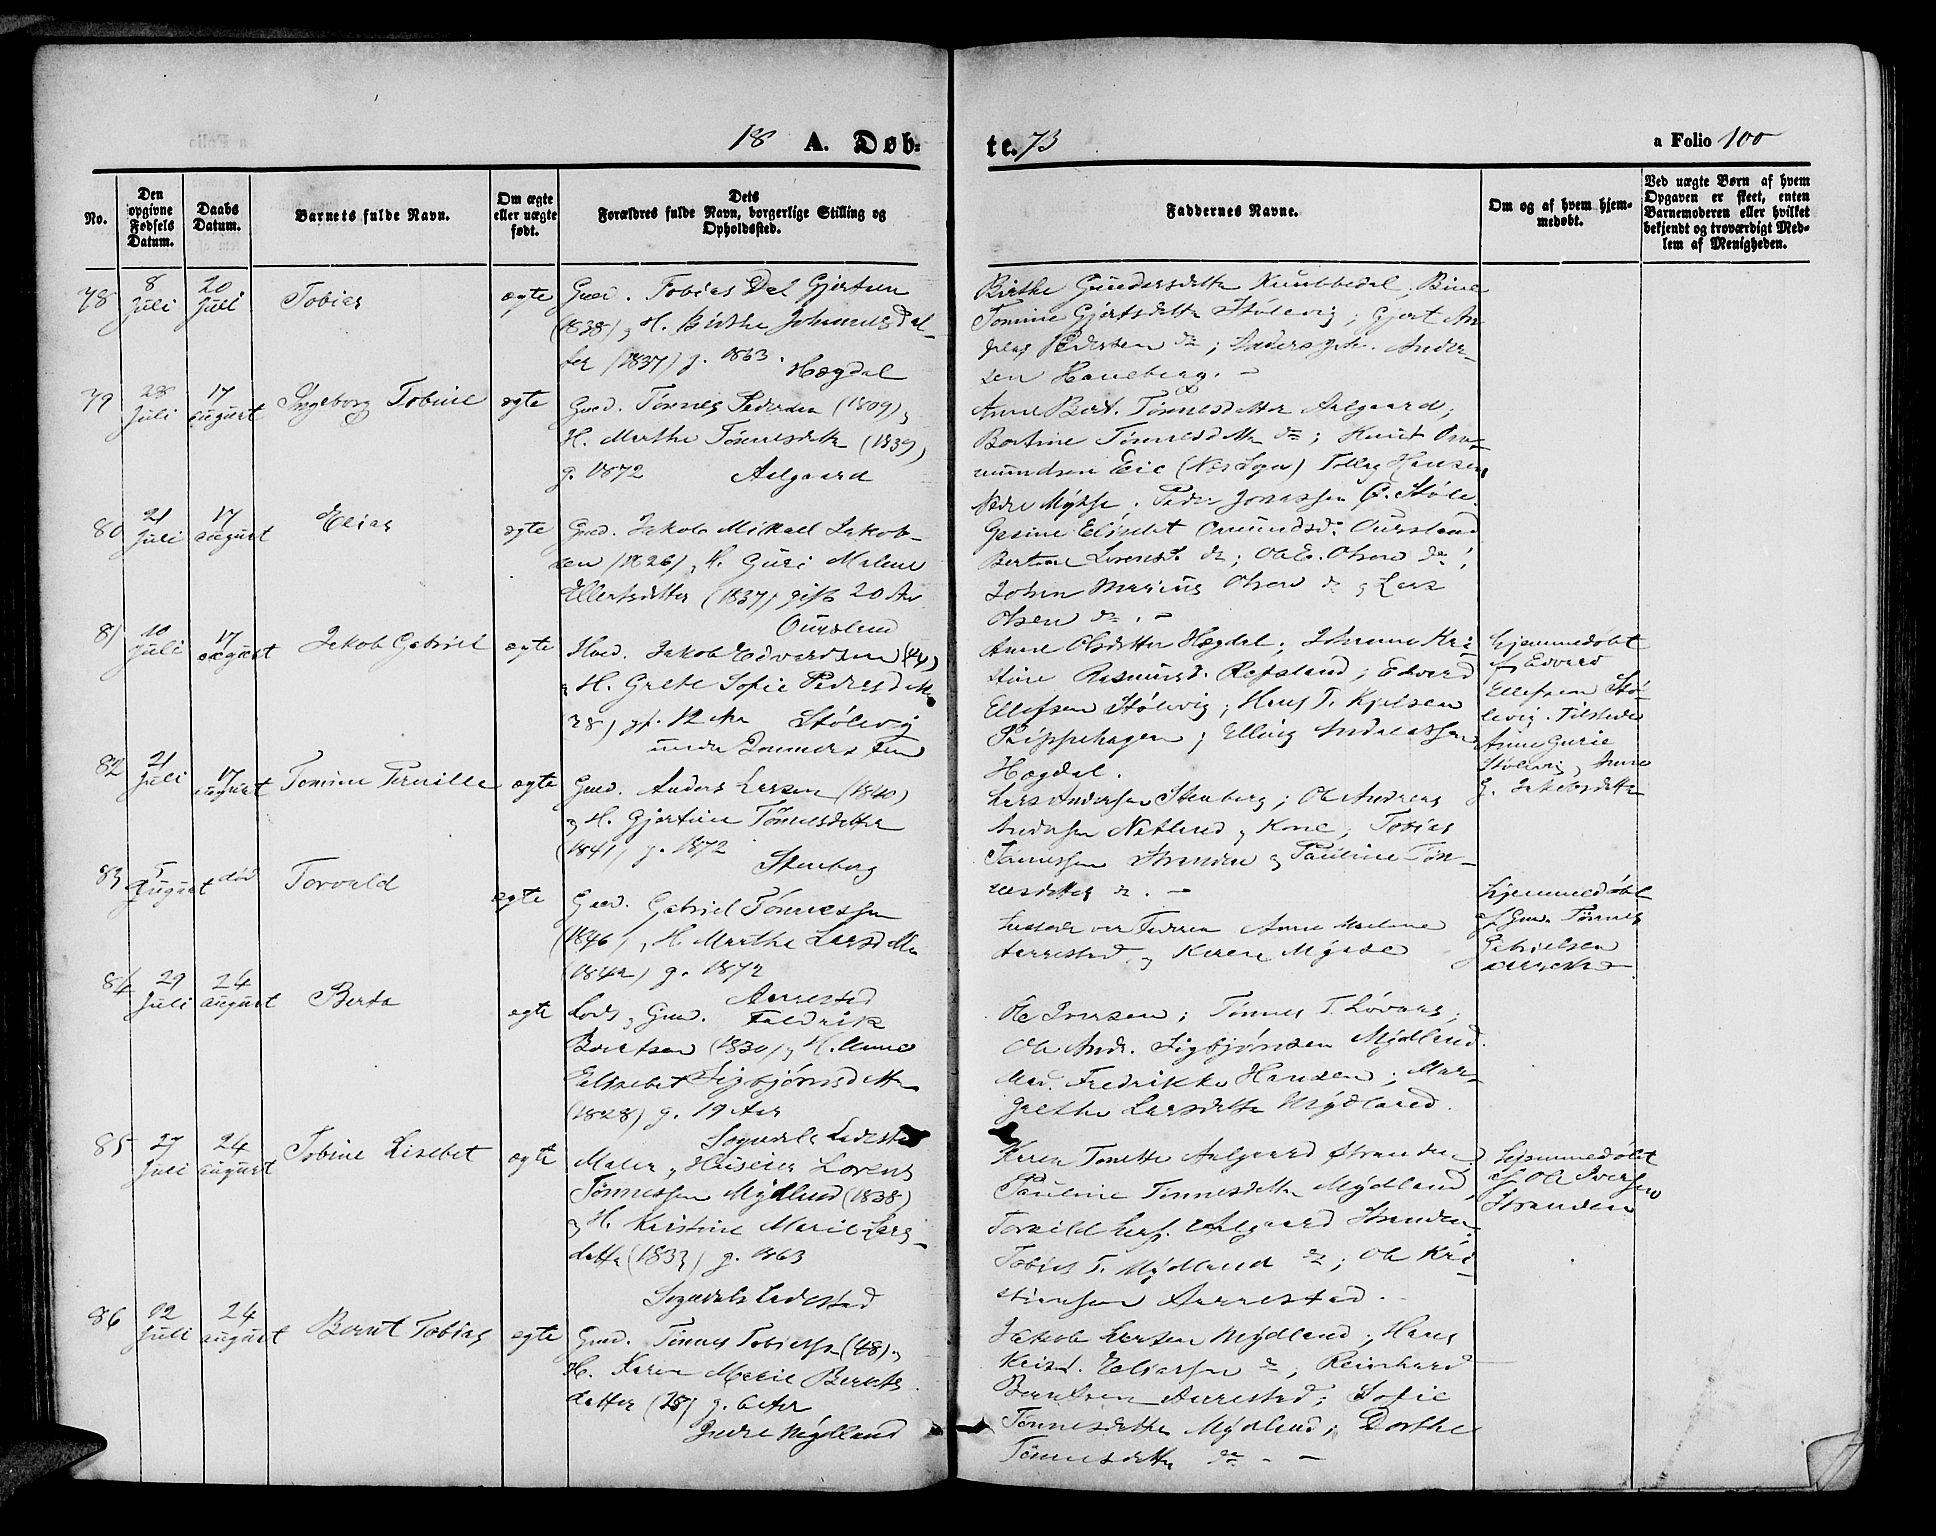 18 A. Døb-
te. 73
a Folio 100
No.
Den opgivne Fødsels Datum.
Daabs Datum.
Barnets fulde Navn.
Om ægte eller uægte født.
Dets Forældres fulde Navn, borgerlige Stilling og Opholdssted.
Faddernes Navne.
Om og af hvem hjemmedøbt.
Ved uægte Børn af hvem Opgaven er skeet, enten Barnemoderen eller hvilket bekjendt og troværdigt Medlem af Menigheden.
78 8 Juli 20 Juli Tobias ægte
Gmd. Tobias Dal Gjertsen
(1838) og H. Birthe Johannesdat-
ter (1837) g. 1863.
Hægdal
Birthe Gundersdatter Knubbedal; Bine
Tomine Gjertsdatter Stølevig; Gjert An-
dreas Pedersen do; Anders Ander-
sen Haneberg. -
79 28 Juli 17 august Ingeborg Tobine ægte
Gmd. Tønnes Pedersen (1809) og
H. Marthe Tønnesdatter (1839)
g. 1872 Aalgaard
Anne Bert. Tønnesdatter Aalgaard;
Bertine Tønnesdatter do; Knut Om-
mundsen Eie (Nes Sogn) Tolleg Hansen
Nedre Mydse; Peder Jonassen Ø. Støle.
80 21 Juli 17 august Elias ægte
Gmd. Jakob Mikall Jakob-
sen (1826) og H. Guri Malene
Ellertsdatter (1837) gift 20 Aar
Oursland
Gesine Elisabet Omundsd. Oursland
Bertine Lorensd. do; Ole E. Olsen do;
Johan Marius Olsen do og Lars
Olsen do. -
81 10 Juli 17 august Jakob Gabriel ægte
Huud. Jakob Edvardsen (44)
og H. Grete Sofie Pedersdatter
(38) gf. 12 Aar Stølevig
Anne Olsdatter Hægdal; Johanne Kri-
stine Rasmusd. Refsland; Edvard
Ellefsen Stølevig; Hans T. Kjelsen
Prippehagen; Elling Andreassen
Hægdal.
hjemmedøbt
af Edvard
Ellefsen Stø-
levig. Tilstede
Anne Gurie
Stølevig og Anne
G. Jakobsdatter
82 21 Juli 17 august Tomine Pernille ægte
Gmd. Anders Larsen (1840)
og H. Gjertine Tønnesdatter
(1841) g. 1872
Stenberg
Lars Andersen Stenberg; Ole Andreas
Andersen Netland og Kone; Tobias
Tønnessen Stranden og Pauline Tøn-
nesdatter do. -
83 5 August død Torvald ægte
Gmd. Gabriel Tønnessen
(1846) og H. Marthe Larsdatter
(1842) g. 1872
Aarrestad
Anne Malene
Aarrestad og Karen Mydse
hjemmedøbt
af Gmd. Tønnes
Gabrielsen
84 29 Juli 24 august Berta ægte
Lods og Gmd. Faldrik
Berntsen (1830) og H. Anne
Elisebet Sigbjørnsdatter
(1828) g. 19 Aar
Sogndals Ladested
Ole Iversen; Tønnes T. Løvaas;
Ole Andr. Sigbjørnsen Mydland.
Mad. Fredrikke Hansen; Mar-
grethe Larsdatter Mydland.
85 27 Juli 24 august Tobine Lisebet ægte
Maler og Huseier Lorens
Tønnessen Mydland (1838)
og H. Kirstine Marie Lars-
datter (1833) g. 1863
Sogndals Ladested
Karen Tonette Aalgaard Stranden
Pauline Tønnesdatter Mydland
Torvild Larss. Aalgaard Stranden
Tobias T. Mydland do; Ole Kri-
stiansen Aarrestad.
hjemmedøbt
af Ole Iversen
Stranden
86 12 Juli 24 august Bernt Tobias ægte
Gmd. Tønnes Tobiassen (48) og
H. Karen Marie Bernts-
datter (28) g. 6 Aar
Indre Mydland
Jakob Larsen Mydland; Hans
Krist. Eliassen do; Reinhard
Berntsen Aarrestad; Sofie
Tønnesdatter Mydland; Dorthe
Tønnesdatter do - -